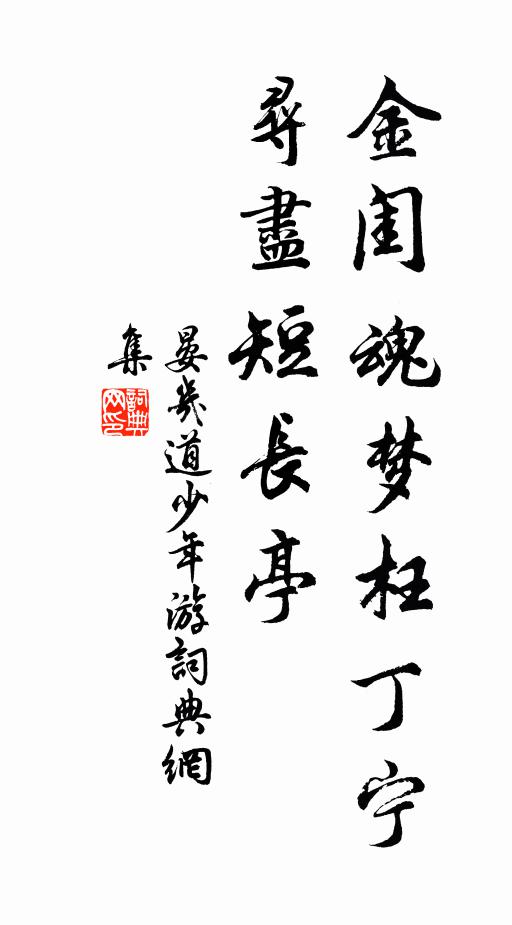 金闺魂梦枉丁宁
尋盡短長亭
晏幾道少年游詞典網
集
詞典
网印